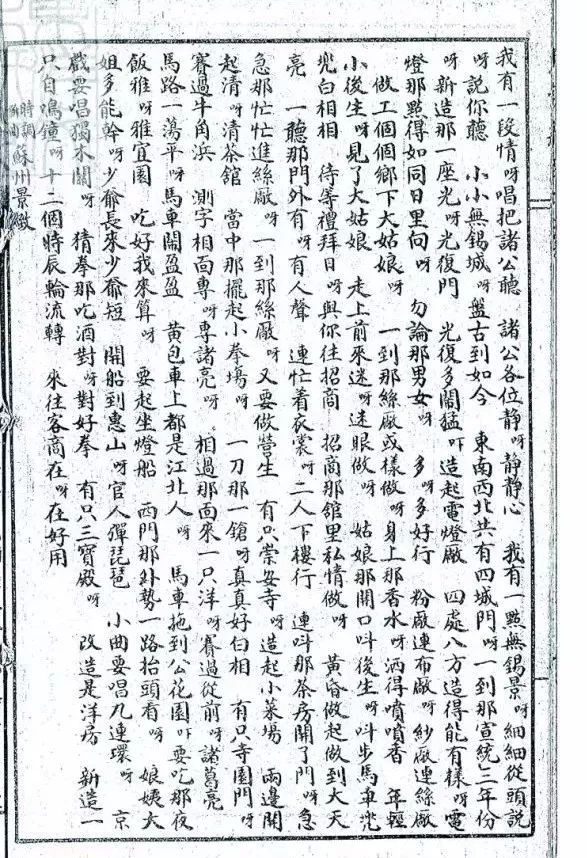 我有一段情呀唱把諸公聽　諸公各位静呀静静心　我有一點無錫景呀細細從頭説
呀説你聽　小小無錫城呀盤古到如今　東南西北共有四城門呀一到那宣統三年份
呀新造那一座光呀光復門　光復多鬧猛吖造起電燈廠　四處八方造得能有樣呀電
燈那點得如同日里向呀　勿論那男女呀　多呀多好行　粉廠連布廠呀紗廠連絲廠
做工個個鄉下大姑娘呀　一到那絲廠或樣做呀身上那香水呀洒得噴噴香　年輕
小後生呀見了大姑娘　走上前來迷呀迷眼做呀　姑娘那開口呌後生呀呌步馬車兜
兜白相相　待等禮拜日呀與你往招商　招商那舘里私情做呀　黃昏做起做到大天
亮　一聽那門外有呀有人聲　連忙着衣裳呀二人下樓行　連呌那茶房開了門呀急
急那忙忙進絲廠呀一到那絲廠呀又要做營生　有只崇安寺呀造起小菜場　兩邊開
起清呀清茶舘　當中那擺起小拳塲呀　一刀那一鎗呀真真好白相　有只寺園門呀
賽過牛角浜　測字相面專呀專諸亮呀　相過那面來一只洋呀賽過從前呀諸葛亮
馬路一蕩平呀馬車鬧盈盈　黃包車上都是江北人呀　馬車拖到公花園吖要吃那夜
飯雅呀雅宜園　吃好我來算呀　要起坐燈船　西門那外勢一路抬頭看呀　娘姨大
姐多能幹呀少爺長來少爺短　開船到惠山呀官人彈琵琶　小曲要唱九連環呀　京
戲要唱獨木關呀　猜拳那吃酒對呀對好拳　有只三寶殿呀　改造是洋房　新造一
只自鳴鐘呀十二個時辰輪流轉　來往客商在呀在好用
時調
蘇州景緻